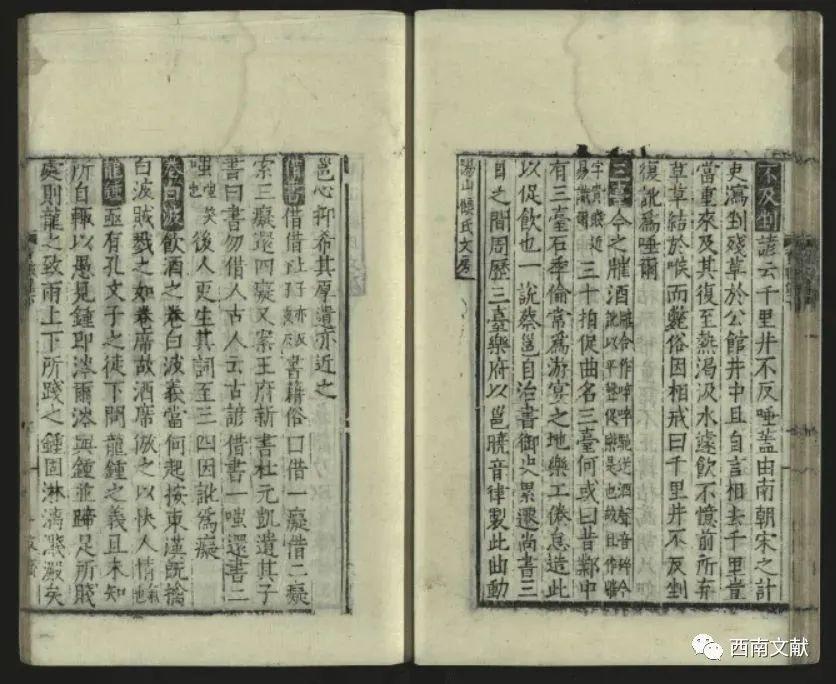 不及剉 諺云千里井不反唾蓋由南朝宋之計
吏瀉剉殘草於公館井中且自言相去千里豈
當重來及其復至熱渴汲水遽飲不憶前所弃
草草結於喉而斃俗因相戒曰千里井不反剉
復訛爲唾爾
三臺 今之𠻜酒 𠻜合作啐啐馳送酒聲音碎今訛以平聲促樂是也故且作𠻜字貴賤易識爾 三十拍促曲名三臺何或曰昔鄴中
有三臺石季倫常爲游宴之地樂工倦怠造此
以促飲也一說蔡邕自治書御史累遷尚書三
日之間周歷三臺樂府以邕曉音律製此曲動
陽山顧氏文房
邕心抑希其厚遺亦近之
借書 借借 書籍俗曰借一癡借二癡
索三癡還四癡又案王府新書杜元凱遺其子
書曰書勿借人古人云古諺借書一嗤還書二
嗤 嗤笑也 後人更生其詞至三四因訛爲癡
卷白波 飲酒之卷白波義當何起按東漢旣擒
白波賊戮之如卷席故酒席倣之以快人情氣也
龍鍾 亟有孔文子之徒下問龍鍾之義且未知
所自輒以愚見鍾即涔爾涔與鍾並蹄足所踐
處則龍之致雨上下所踐之鍾固淋漓濺澱矣
西南文献